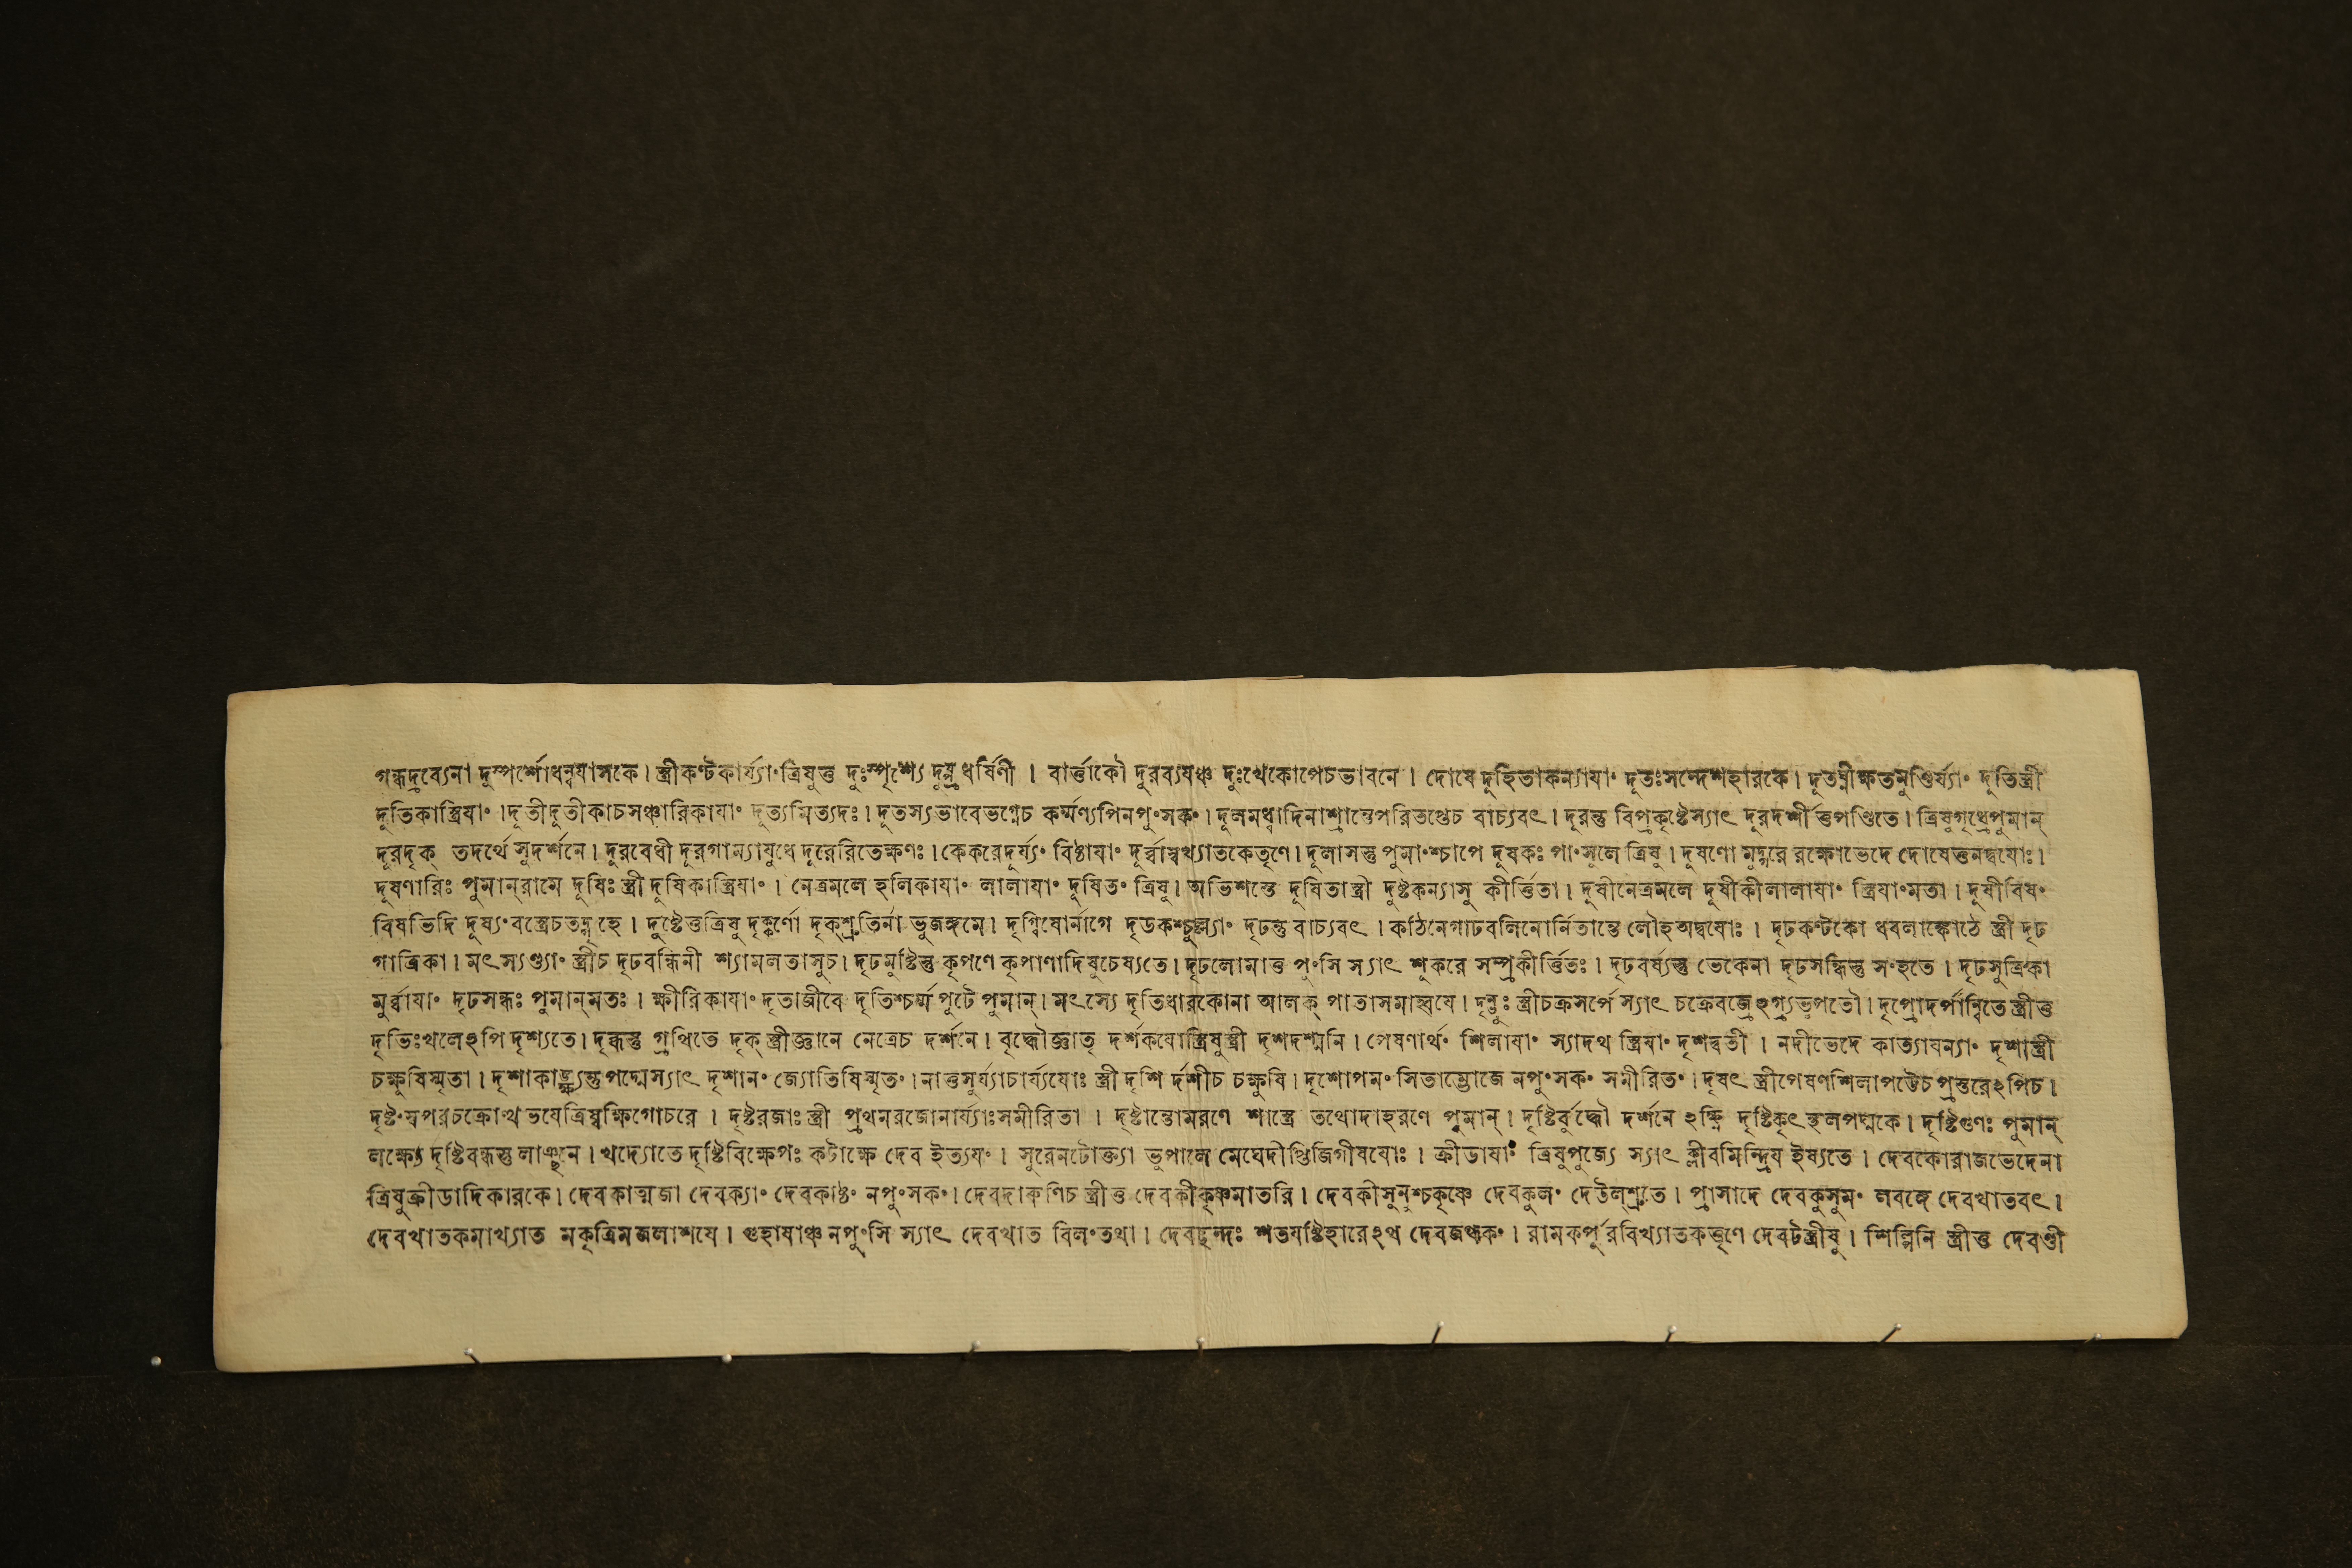 গন্ধদ্রব্যেনা দুস্পর্শোধন্বযাসকে। স্ত্রীকণ্টকার্য্যাং ত্রিষুত্তু দুঃস্পৃশ্যে দুষ্প্রধর্ষিণী । বার্ত্তাকৌ দুরব্যযঞ্চ দুঃখেকোপেচভাবনে । দোষে দুহিতাকন্যাযাং দূতঃসন্দেশহারকে। দূতঘ্নীক্ষতমুণ্ডির্য্যাং দূতিস্ত্রী
দূতিকাস্ত্রিযাং ।দূতীদূতীকাচসঞ্চারিকাযাং দূত্যমিত্যদঃ। দূতস্যভাবেভগ্নেচ কর্ম্মণ্যপিনপুংসকং। দূলমধ্বাদিনাশ্রান্তেপরিতপ্তেচ বাচ্যবৎ। দূরন্তু বিপ্রকৃষ্টেস্যাৎ দূরদর্শীত্তপণ্ডিতে। ত্রিষুগৃধ্রেপুমান্
দূরদৃক্ তদর্থে সুদর্শনে। দূরবেধী দূরগাম্যাযুধে দূরেরিতেক্ষণঃ। কেকরেদূর্য্যং বিষ্ঠাযাং দূর্ব্বাস্বখ্যাতকেতৃণে। দূলাসস্তু পুমাংশ্চাপে দূষকঃ পাংসুলে ত্রিষু। দূষণো মুদ্গরে রক্ষোভেদে দোষেত্তনদ্বযোঃ।
দূষণারিঃ পুমান্রামে দূষিঃ স্ত্রী দূষিকাস্ত্রিযাং। নেত্রমলে হলিকাযাং লালাযাং দূষিতং ত্রিষু। অভিশস্তে দূষিতাস্ত্রী দুষ্টকন্যাসু কীর্ত্তিতা। দূষীনেত্রমলে দূষীকীলালাযাং স্ত্রিযাংমতা। দূষীবিষং
বিষভিদি দূষ্যংবস্ত্রেচতদ্গৃহে । দুষ্টেত্তত্রিষু দৃক্কর্ণো দৃক্শ্রুতির্না ভুজঙ্গমে। দৃগ্বিষোর্নাগে দৃডকশ্চুল্ল্যাং দৃঢন্তু বাচ্যবৎ । কঠিনেগাঢবলিনোর্নিতান্তে লৌহঅদ্বযোঃ । দৃঢকণ্টকো ধবলাঙ্কোঠে স্ত্রী দৃঢ
গাত্রিকা। মৎস্যণ্ড্যাং স্ত্রীচ দৃঢবন্ধিনী শ্যামলতাসুচ। দৃঢমুষ্টিস্তু কৃপণে কৃপাণাদিষুচেষ্যতে। দৃঢলোমাত্ত পুংসি স্যাৎ শূকরে সম্প্রকীর্ত্তিতঃ। দৃঢবর্ষ্যস্তু ভেকেনা দৃঢসন্ধিস্তু সংহতে । দৃঢসূত্রিকা
মুর্ব্বাযাং দৃঢসন্ধঃ পুমান্মতঃ । ক্ষীরিকাযাং দৃতাজীবে দৃতিশ্চর্ম্ম পুটে পুমান্। মৎস্যে দৃতিধারকোনা আলক্ পাতাসমাহ্বযে। দৃন্ভূঃ স্ত্রীচক্রসর্পে স্যাৎ চক্রেবজ্রেঽগ্ন্যভূপতৌ। দৃপ্রোদর্পান্বিতে স্ত্রীত্ত
দৃভিঃখলেঽপি দৃশ্যতে। দৃব্ধস্তু গ্রথিতে দৃক্ স্ত্রীজ্ঞানে নেত্রেচ দর্শনে। বৃদ্ধৌজ্ঞাতৃ দর্শকযোস্ত্রিষুস্ত্রী দৃশদশ্মনি। পেষণার্থং শিলাযাং স্যাদথ স্ত্রিযাং দৃশদ্বতী । নদীভেদে কাত্যাযন্যাং দৃশাস্ত্রী
চক্ষুষিস্মৃতা। দৃশাকাঙ্ক্ষ্যস্তুপদ্মেস্যাৎ দৃশানং জ্যোতিষিস্মৃতং। নাত্তসূর্য্যাচার্য্যযোঃ স্ত্রী দৃশি র্দশীচ চক্ষুষি। দৃশোপমং সিতাম্ভোজে নপুংসকং সমীরিতং। দৃষৎ স্ত্রীপেষণশিলাপট্টেচপ্রস্তরেঽপিচ।
দৃষ্টংস্বপরচক্রোত্থ ভযেত্রিষ্বক্ষিগোচরে । দৃষ্টরজাঃ স্ত্রী প্রথমরজোনার্য্যাঃসমীরিতা । দৃষ্টান্তোমরণে শাস্ত্রে তথোদাহরণে পুমান্। দৃষ্টির্বুদ্ধৌ দর্শনে ঽক্ষ্ণি দৃষ্টিকৃৎ স্থলপদ্মকে। দৃষ্টিগুণঃ পুমান্
লক্ষ্যে দৃষ্টিবন্ধস্তু লাঞ্ছনে। খদ্যোতে দৃষ্টিবিক্ষেপঃ কটাক্ষে দেব ইত্যযং। সুরেনটোক্ত্যা ভূপালে মেঘেদীপ্তিজিগীষযোঃ । ক্রীডাযাং ত্রিষুপুজ্যে স্যাৎ ক্লীবমিন্দ্রিয ইষ্যতে। দেবকোরাজভেদেনা
ত্রিষুক্রীডাদিকারকে। দেবকাত্মজা দেবক্যাং দেবকাষ্ঠং নপুংসকং। দেবদারুণিচ স্ত্রীত্ত দেবকীকৃষ্ণমাতরি। দেবকীসূনুশ্চকৃষ্ণে দেবকুলং দেউল্শ্রুতে । প্রাসাদে দেবকুসুমং লবঙ্গে দেবখাতবৎ।
দেবখাতকমাখ্যাত মকৃত্রিমজলাশযে। গুহাযাঞ্চ নপুংসি স্যাৎ দেবখাত বিলংতথা। দেবচ্ছন্দঃ শতযষ্টিহারেঽথ দেবজগ্ধকং। রামকর্পুরবিখ্যাতকত্তৃণে দেবটস্ত্রীষু। শিল্পিনি স্ত্রীত্ত দেবণ্ডী